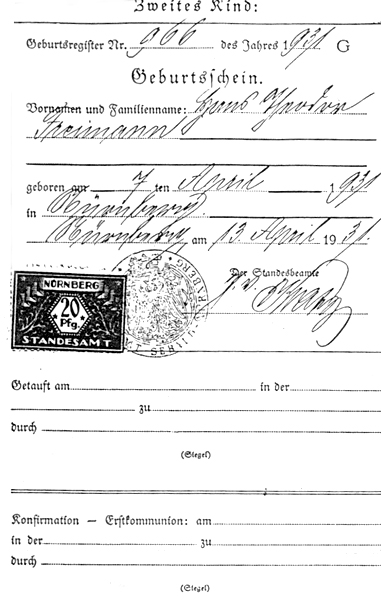 Zweites Kind:
Geburtsregister Nr. 966 des Jahres 1931 G
Geburtsschein.
Vornamen und Familienname: Hans Theodor
Freimann
geboren am 7 ten April 1931
in Nürnberg.
Nürnberg, am 13. April 1931.
Der Standesbeamte
J. V.
NÜRNBERG
20
Pfg.
STANDESAMT
Getauft am in der
zu
durch
(Siegel)
Konfirmation — Erstkommunion: am
in der zu
durch
(Siegel)